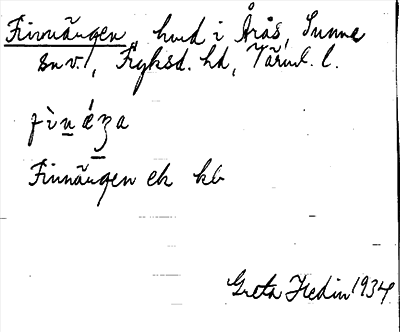 Finnängen, hmd i Årås, Sunne
sn v., Fryksd. hd, Värml. l.
fìnǽŋa
Finnängen ek kb
Greta Hedin 1934